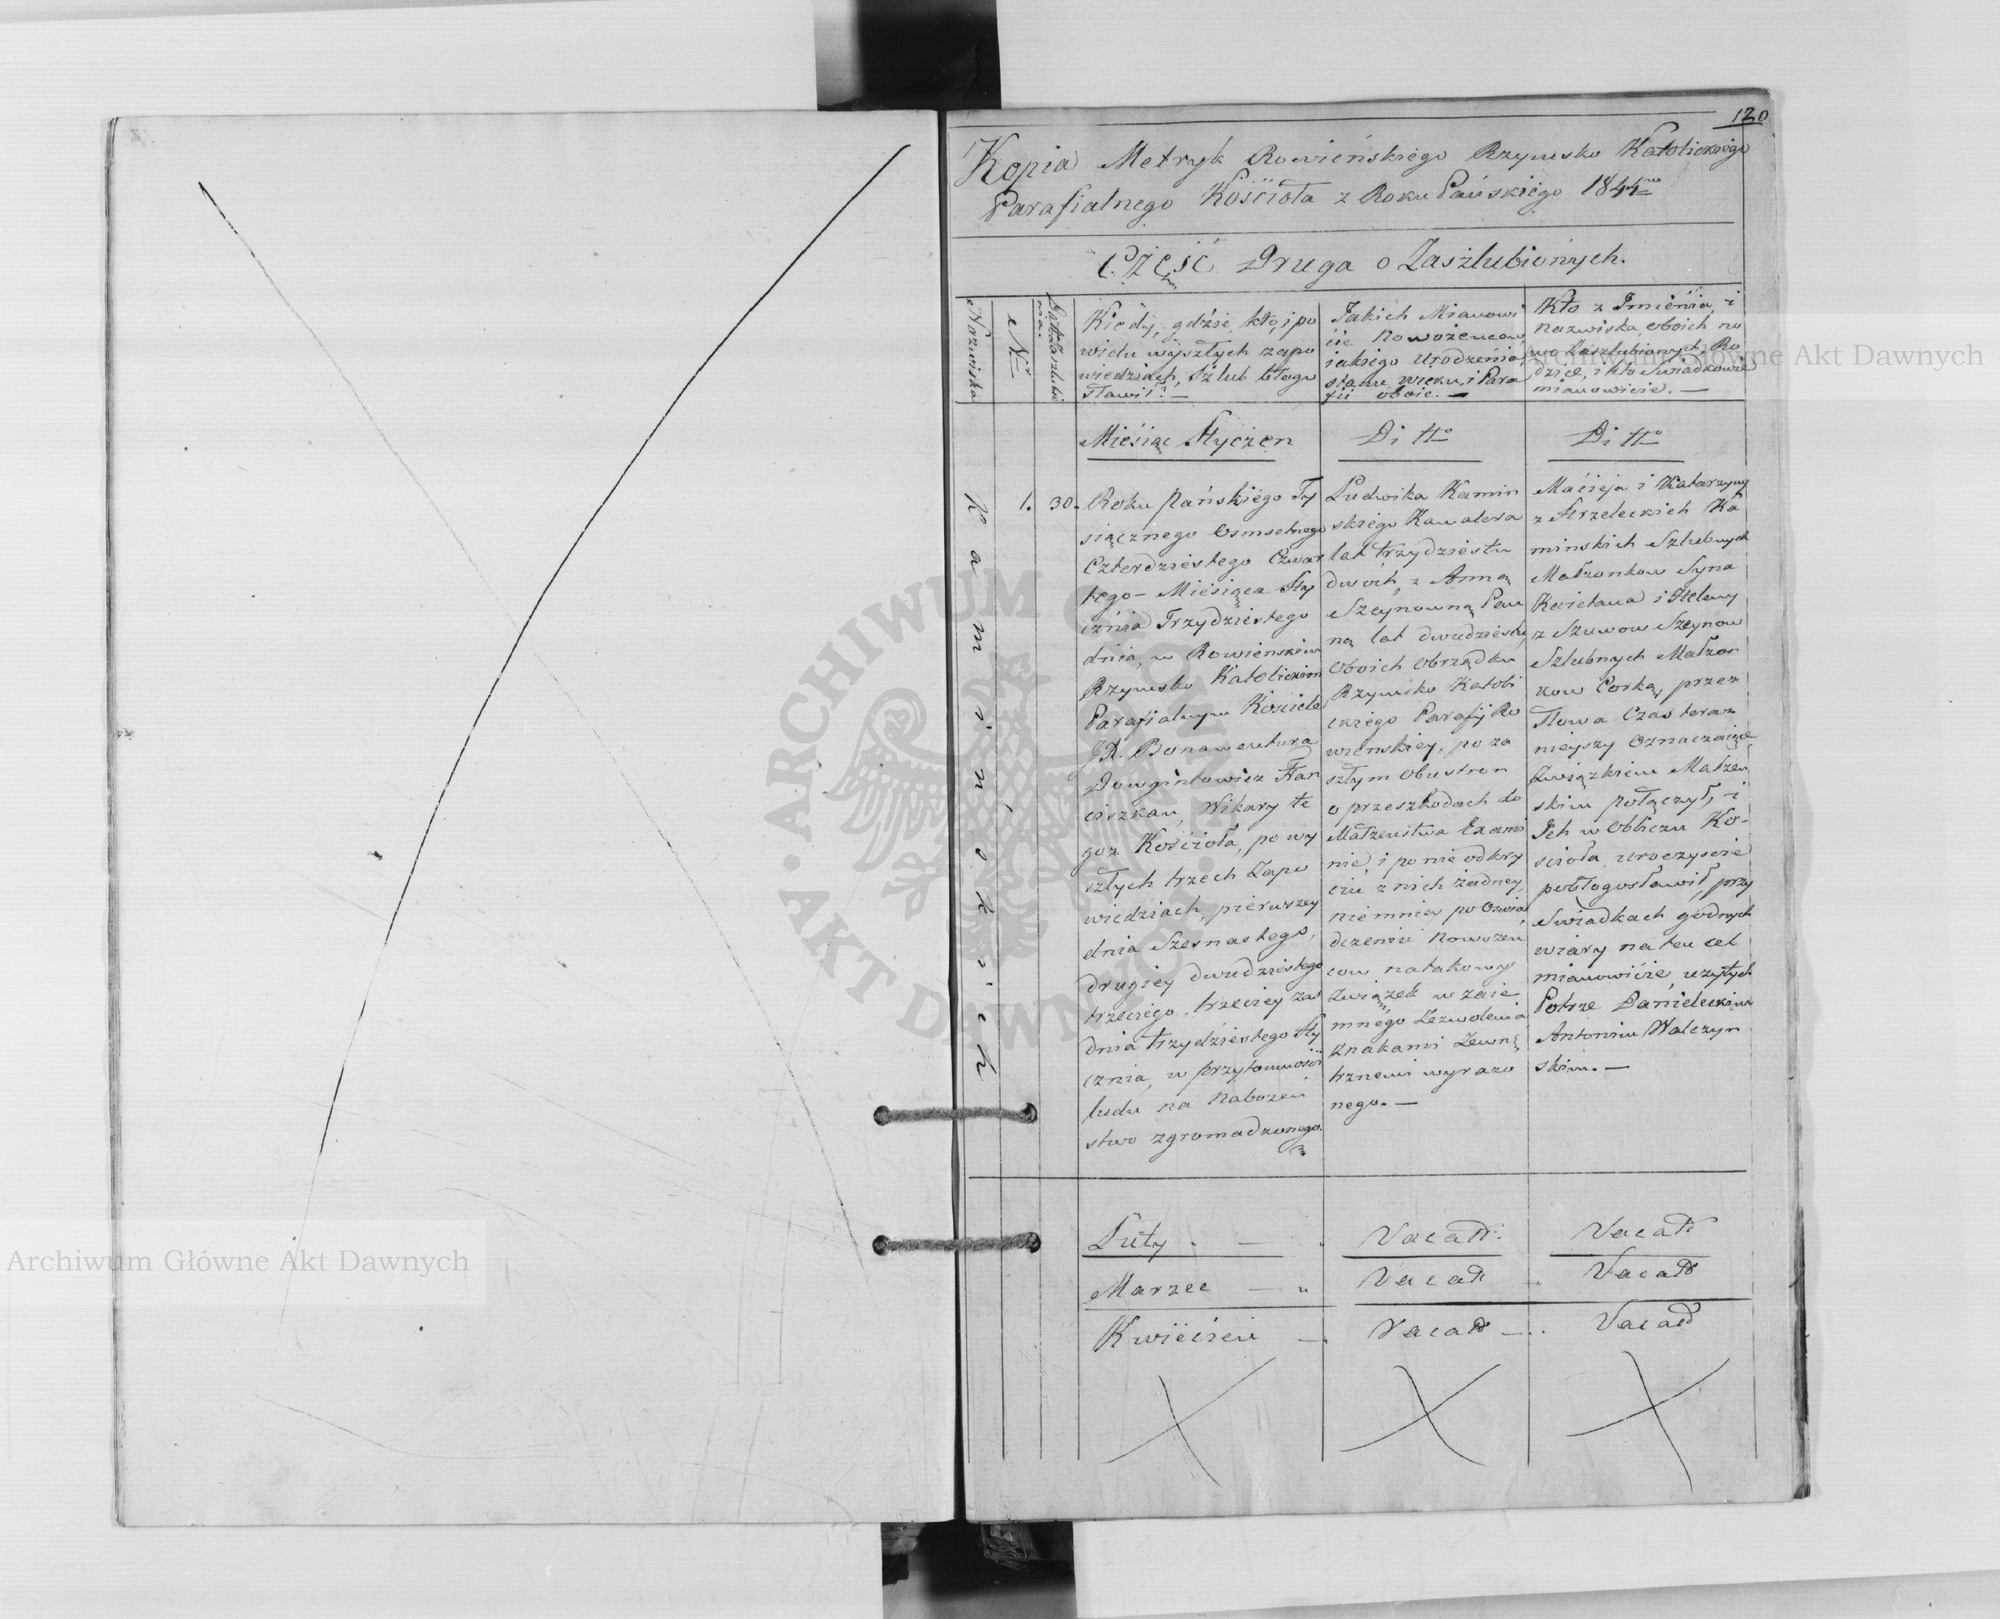 120
Kopia Metryk Rowieńskiego Rzymsko Katolickiego
Parafialnego Kościoła z Roku Pańskiego 1844
Część Druga o Zaszlubionych.
Nazwiska
N
Data Zaszlubienia
Kiedy, gdzie, kto, i po
wielu wyszłych zapo
wiedziach, Szlub błogo
sławił? —
Jakich Mianowi
cie Nowożencow
iakiego Urodzenia,
stanu, wieku, i Para
fii oboie. —
Kto z Imienia, i
nazwiska oboich no
wo Zaszlubionych, Ro
dzice, i kto Swiadkowie
mianowicie. —
Miesiąc Styczen
Di tto
Di tto
Kaminskich
1.
30.
Roku Pańskiego Ty
siącznego Osmsetnego
Czterdziestego Czwar
tego — Miesiąca Sty
cznia Trzydziestego
dnia, w Rowienskim
Rzymsko Katolickim
Parafialnym Kościele
JX. Bonawentura
Dowgintowicz Fran
ciszkan, Wikary te
goz Kościoła, po wy
szłych trzech Zapo
wiedziach, pierwszey
dnia Szesnastego,
drugiey dwudziestego
trzeciego, trzeciey zas
dnia trzydziestego Sty
cznia, w przytomności
ludu na Nabozeń
stwo zgromadzonego.
Ludwika Kamin
skiego Kawalera
lat trzydziestu
dwoch, z Anną
Szeynowną Pan
ną lat dwudziestu,
oboich obrządku
Rzymsko Katoli
ckiego Parafij Ro
wienskiey, po za
szłym obustron
o przeszkodach do
Małzenstwa Exami
nie, i po nie odkry
ciu z nich żadney,
niemniey po Oswiad
dczeniu Nowożeń
cow na takowy
Związek wzaie
mnego Zezwolenia
znakami Zewnę
trznemi wyrazo
nego. —
Macieja i Katarzyny
z Strzeleckich Ka
minskich Szlubnych
Małzonkow Syna
Kaietana i Heleny
z Szuwow Szeynow
Szlubnych Małzon
kow Corką, przez
Słowa Czas teraz
nieyszy Oznaczaiące
Związkiem Małzeń
skim połączył, i
Ich w Obliczu Ko-
scioła uroczyscie
pobłogosławił, przy
Swiadkach godnych
wiary na ten cel
mianowicie, uzytych
Potrze Danieleckim
Antonim Walczyn
skim. —
Luty
Vacat
Vacat
Marzec
Vacat
Vacat
Kwiecień
Vacat
Vacat
Archiwum Główne Akt Dawnych
Archiwum Główne Akt Dawnych
ARCHIWUM GŁÓWNE AKT DAWNYCH